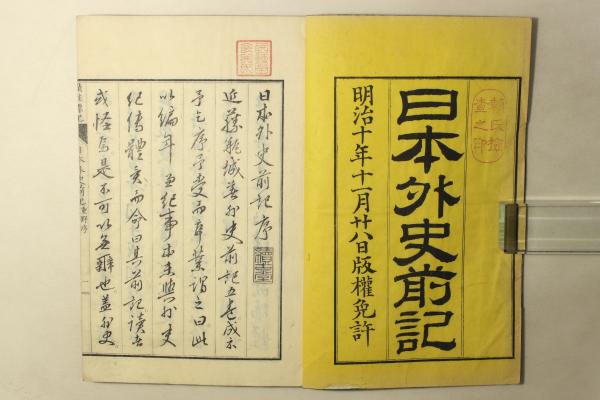 日本外史前記
明治十年十一月廿八日版權免許
日本外史前記序
近藤瓶城著外史前記五卷成示
予乞序予受而卒業謂之曰此
以編年
紀傳體矣而命曰其前記讀者
或怪焉是不可以無辯也蓋外史